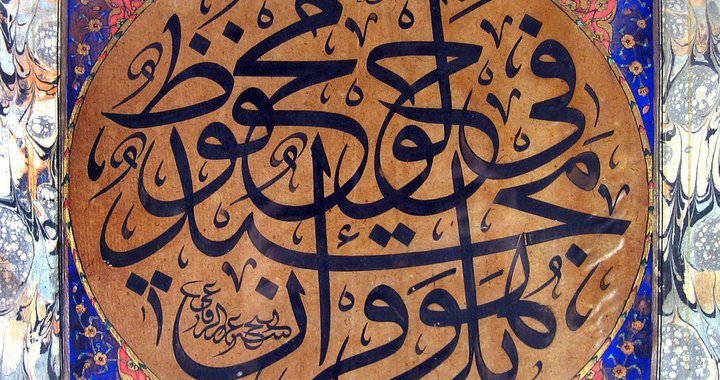 بل هو قرآن
مجيد
في لوح محفوظ
الرفاعي